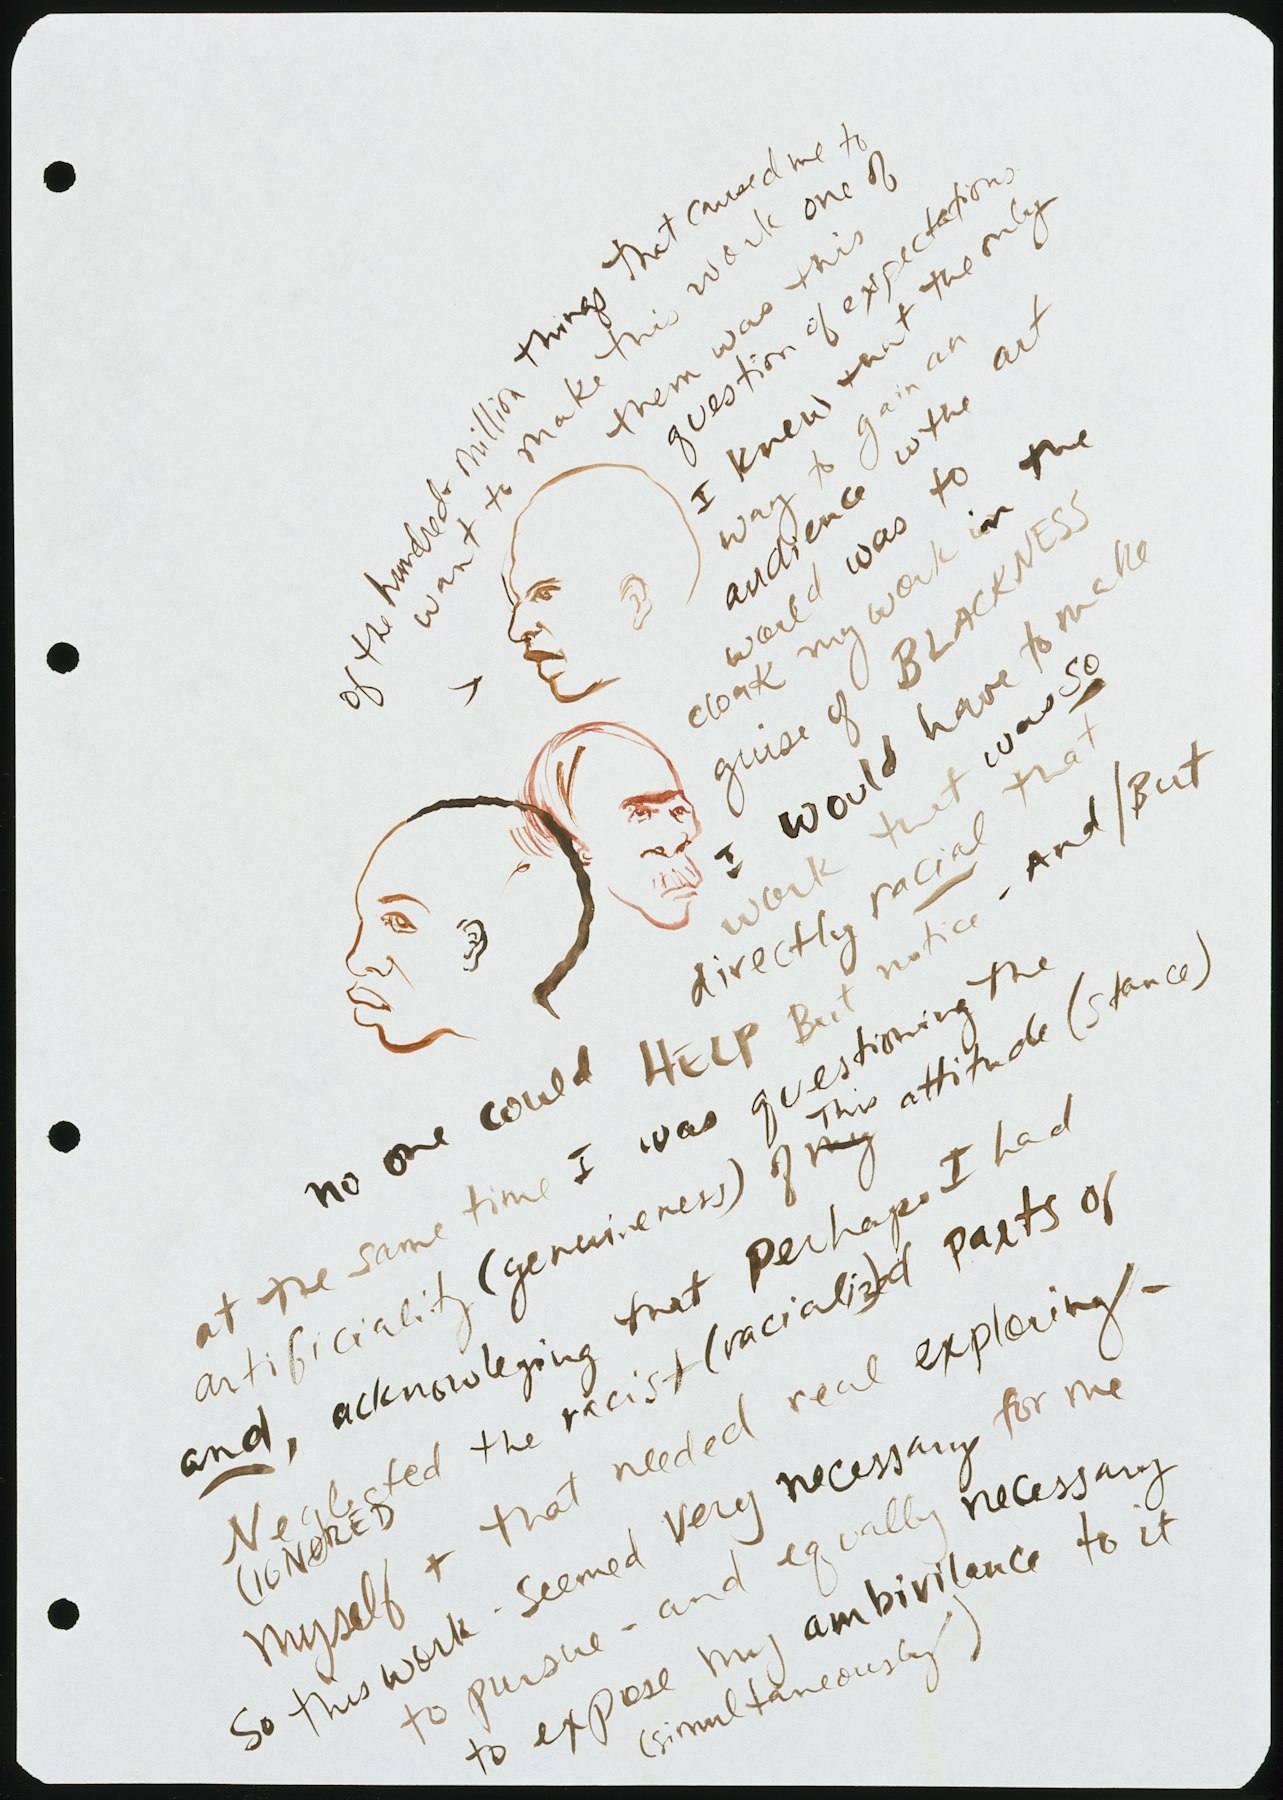 of the hundred million things that caused me to
want to make this work one of
them was this
question of expectations.
I knew that the only
way to gain an
audience w/the art
world was to
cloak my work in the
guise of BLACKNESS
I would have to make
work that was so
directly racial that
no one could HELP But notice - And/But
at the same time I was questioning the
artificiality (genuineness) of my This attitude (stance)
and, acknowleging that perhaps I had
Neglected the racist (racialized parts of
(IGNORED
myself + that needed real exploring -
So this work - seemed very necessary for me
to pursue - and equally necessary
to expose my ambivilance to it
(simultaneously)